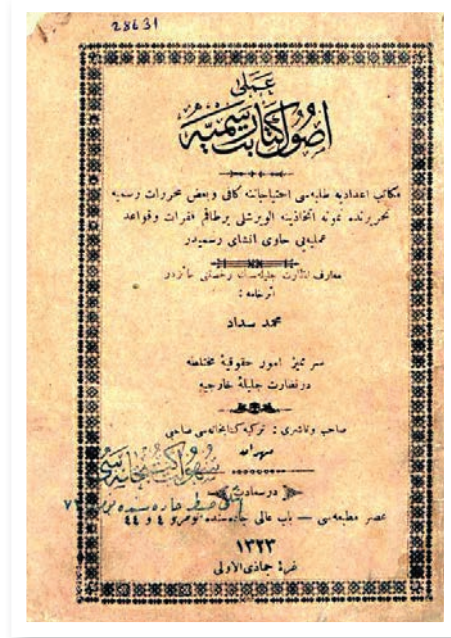 28631
عملی
اصول کتابت رسمیه
مکاتب اعدادیه طلبه‌سی احتیاجاتنه کافی و بعض محررات رسمیه
تحریرنده نمونه اتخاذینه الویرشلی برطاقم فقرات و قواعد
عملیه‌یی حاوی انشای رسمیدر
معارف نظارت جلیله‌سنك رخصتی حائزدر
اثر خامه :
محمد سداد
سر ممیز امور حقوقیهٔ مختلطه
در نظارت جلیلهٔ خارجیه
صاحب و ناشری : ترکیه کتابخانه‌سی صاحبی
در سعادت
عصر مطبعه‌سی — باب عالی جاده‌سنده نومرو ٤ و ٤٤
١٣٢٣
غره جماذی الاولی